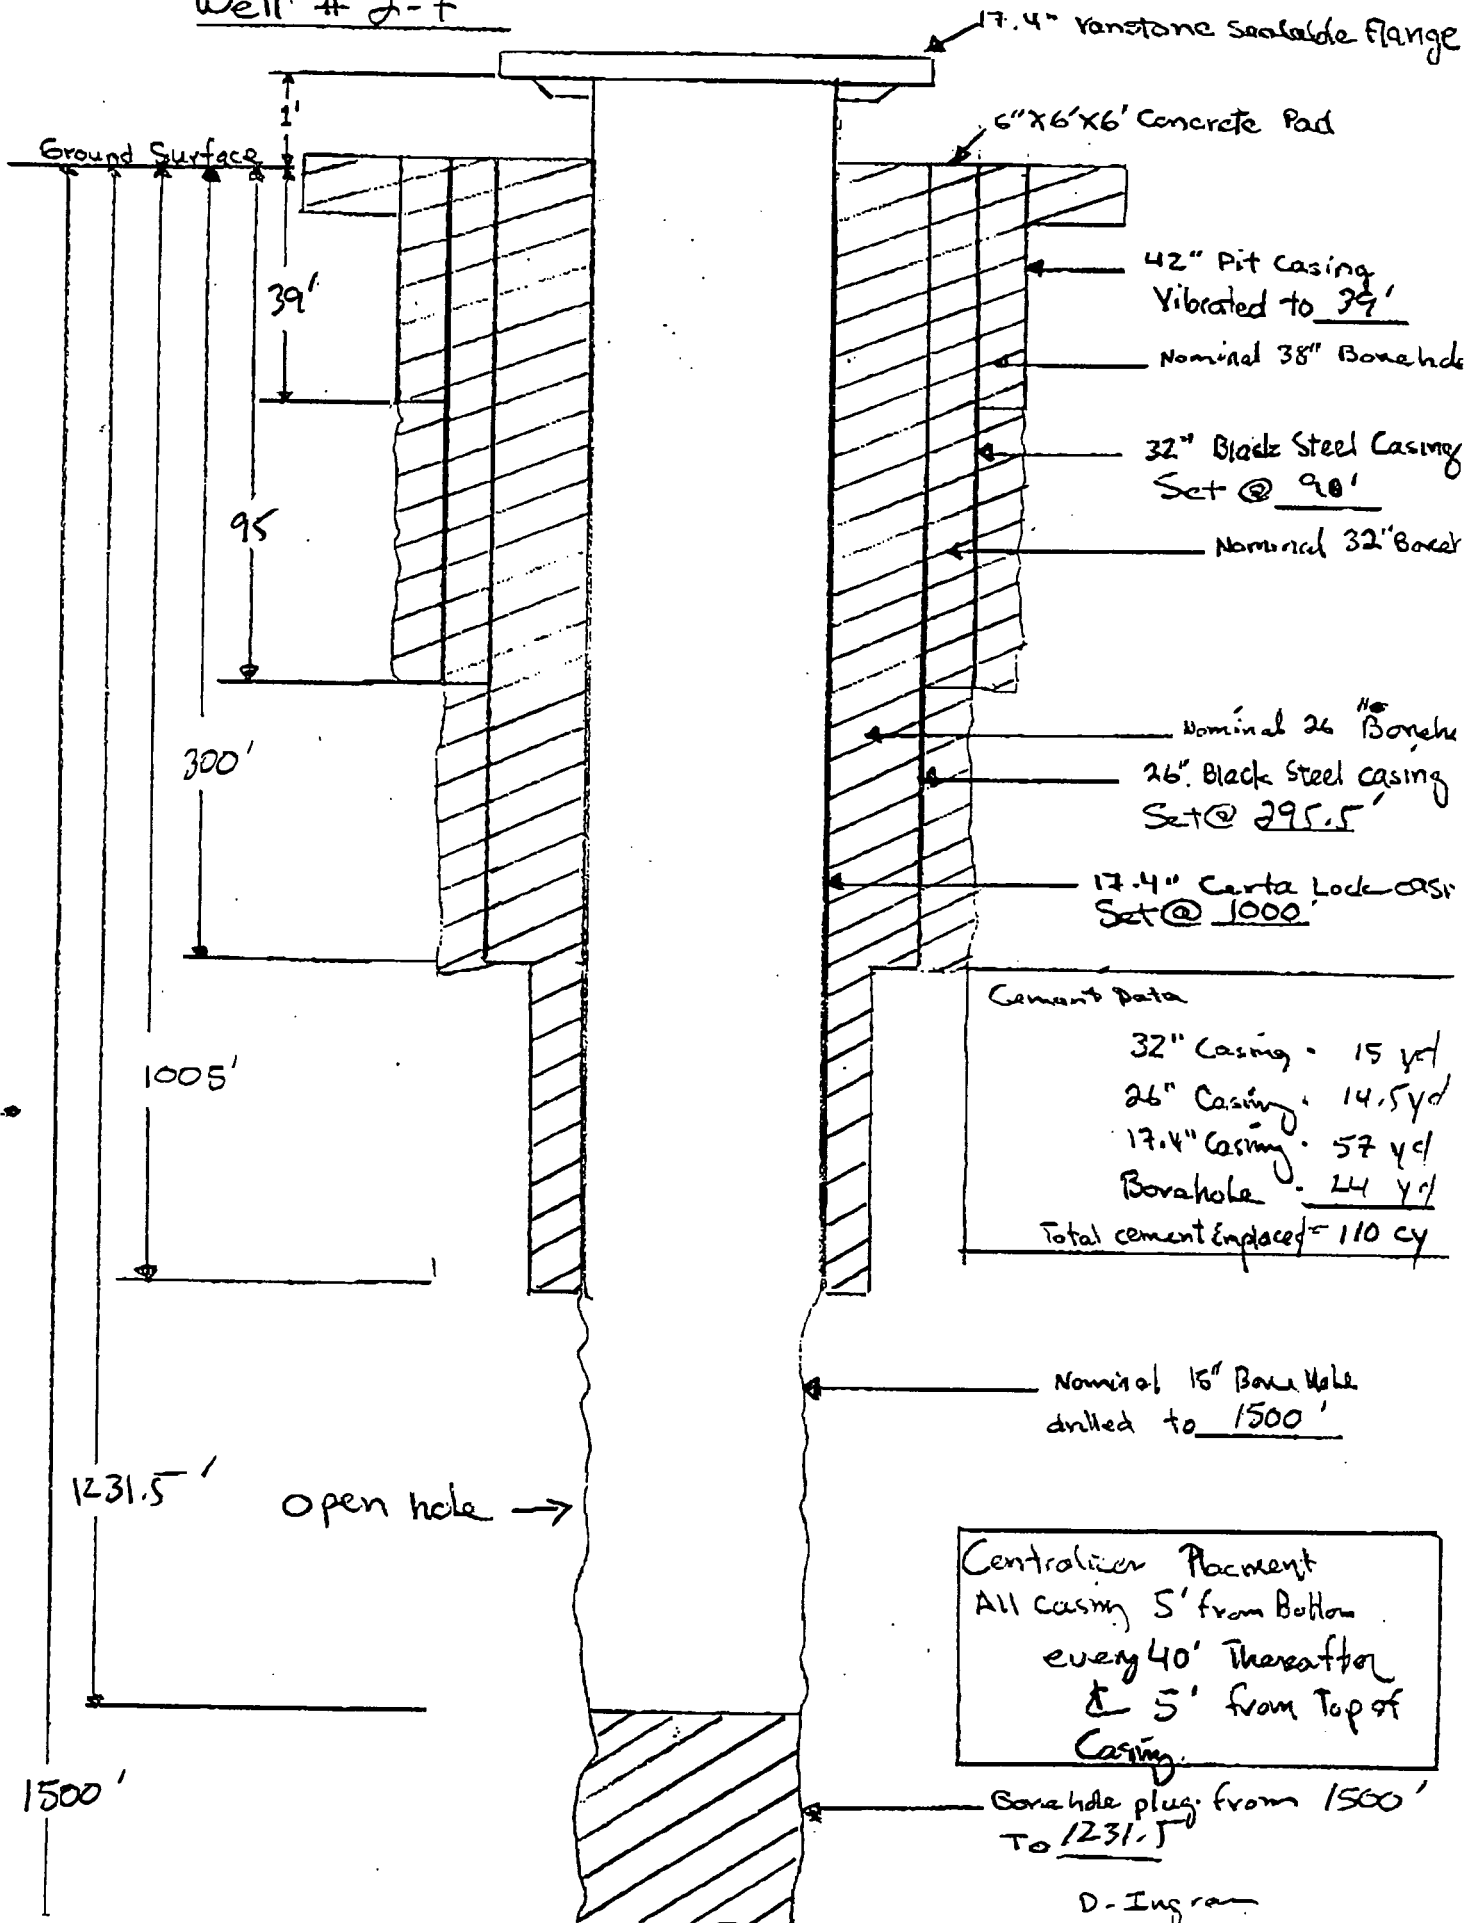 Well #
17.4" Vanstone Sealable Flange
1'
6"X6'X6' Concrete Pad
Ground Surface
42" Pit Casing
Vibrated to 39'
39'
Nominal 38" Borehole
32" Black Steel Casing
Set @ 90'
95
Nominal 32" Boreh
Nominal 26" Boreho
300'
26" Black Steel casing
Set @ 295.5'
17.4" Certa Lock casi
Set @ 1000'
Cement Data
32" Casing - 15 yd
1005'
26" Casing - 14.5 yd
17.4" Casing - 57 yd
Borehole - 24 yd
Total cement Emplaced = 110 cy
Nominal 15" Bore Hole
drilled to 1500'
1231.5'
Open hole →
Centralizer Placment
All casing 5' from Bottom
every 40' Thereafter
& 5' from Top of
Casing.
1500'
Borehole plug from 1500'
To 1231.5
D. Ingram